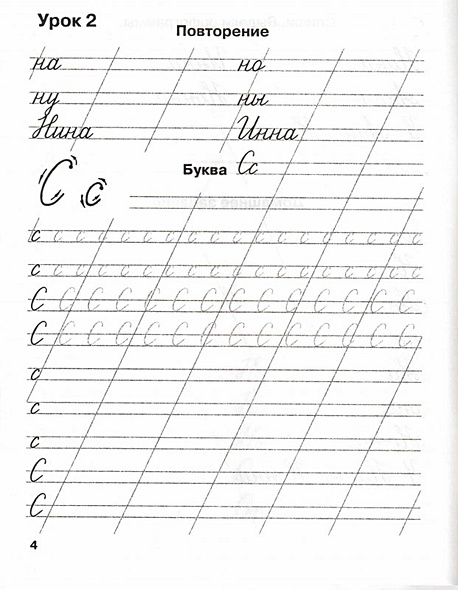 Урок 2
Повторение
на но
ну ны
Нина Инна
Буква Сс
С с
с с с с с с с с с с с с с с с с с с с с с с
с с с с с с с с с с с с с с с с с с с с с с
С С С С С С С С С С С С С С
С С С С С С С С С С С С С С
с
с
с
С
С
4